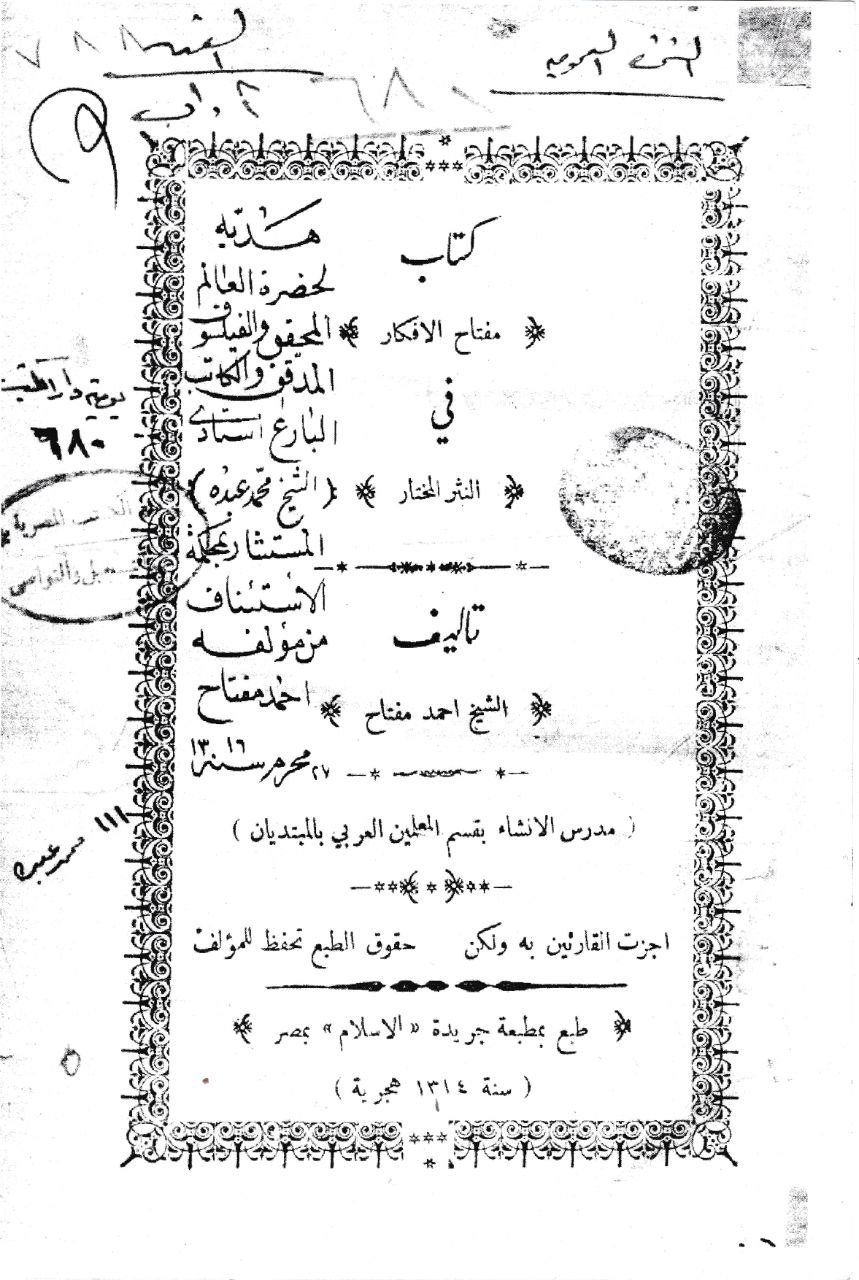 كتاب
مفتاح الافكار
في
النثر المختار
تاليف
الشيخ احمد مفتاح
( مدرس الانشاء بقسم المعلمين العربي بالمبتديان )
اجزت القارئين به ولكن حقوق الطبع تحفظ للمؤلف
طبع بمطبعة جريدة «الاسلام» بمصر
( سنة ١٣١٤ هجرية )
هديه
لحضرة العالم
المحقق والفيلسوف
المدقق والكاتب
البارع استاذى
(الشيخ محمد عبده)
المستشار بمحكمة
الاستئناف
من مؤلفه
احمد مفتاح
٢٧ محرم سنة ١٣١٦
العموميه
٦٨٠
يومية دار الكتب
٦٨٠
المصرية
محمد عبده
١١١